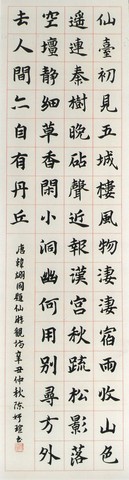 仙臺初見五城樓風物淒淒宿雨收山色
遙連秦樹晚砧聲近報漢宮秋疏松影落
空壇靜細草香閒小洞幽何用別尋方外
去人間亦自有丹丘
唐韓翃同題仙游觀 辛丑仲秋陳妤瑄書